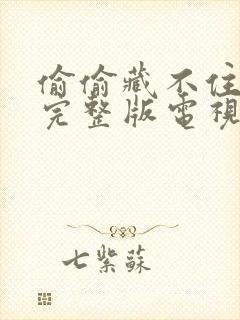 偷偷藏不住
完整版電視
七紫蘇